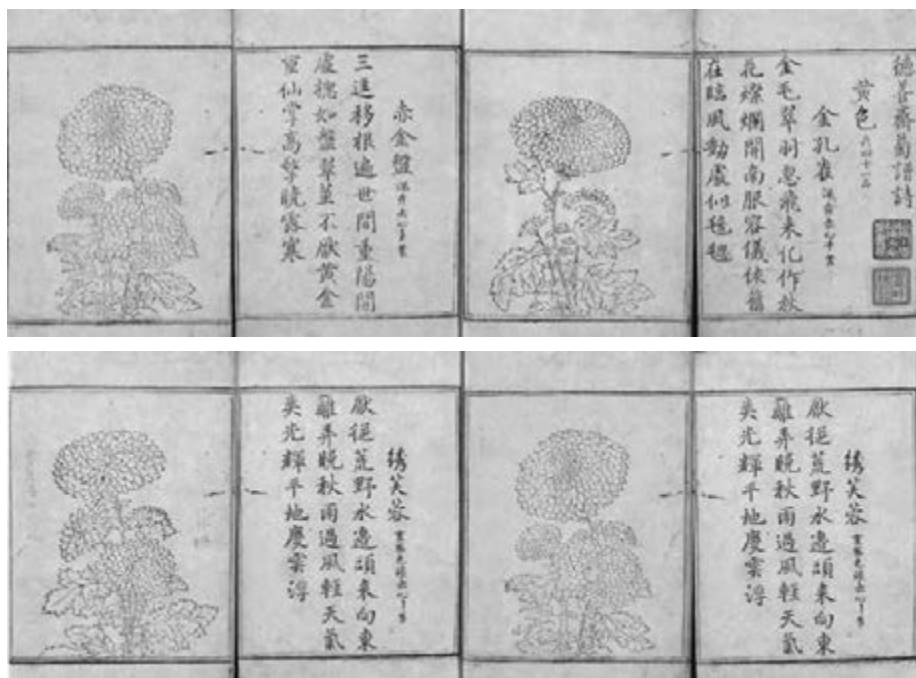 德善齋菊譜詩
黄色
金孔雀
金毛翠羽忽飛来化作秋
花燦爛開南服容儀依舊
在臨風動處似毰毸
赤金盤
三逕移根遍世間重陽開
處搃如盤翠莖不厭黄金
重仙掌高擎曉露寒
綉芙蓉
厭從荒野水邊頭来向東
籬弄晚秋雨過風輕天氣
爽光輝平地慶雲浮
綉芙蓉
厭從荒野水邊頭来向東
籬弄晚秋雨過風輕天氣
爽光輝平地慶雲浮